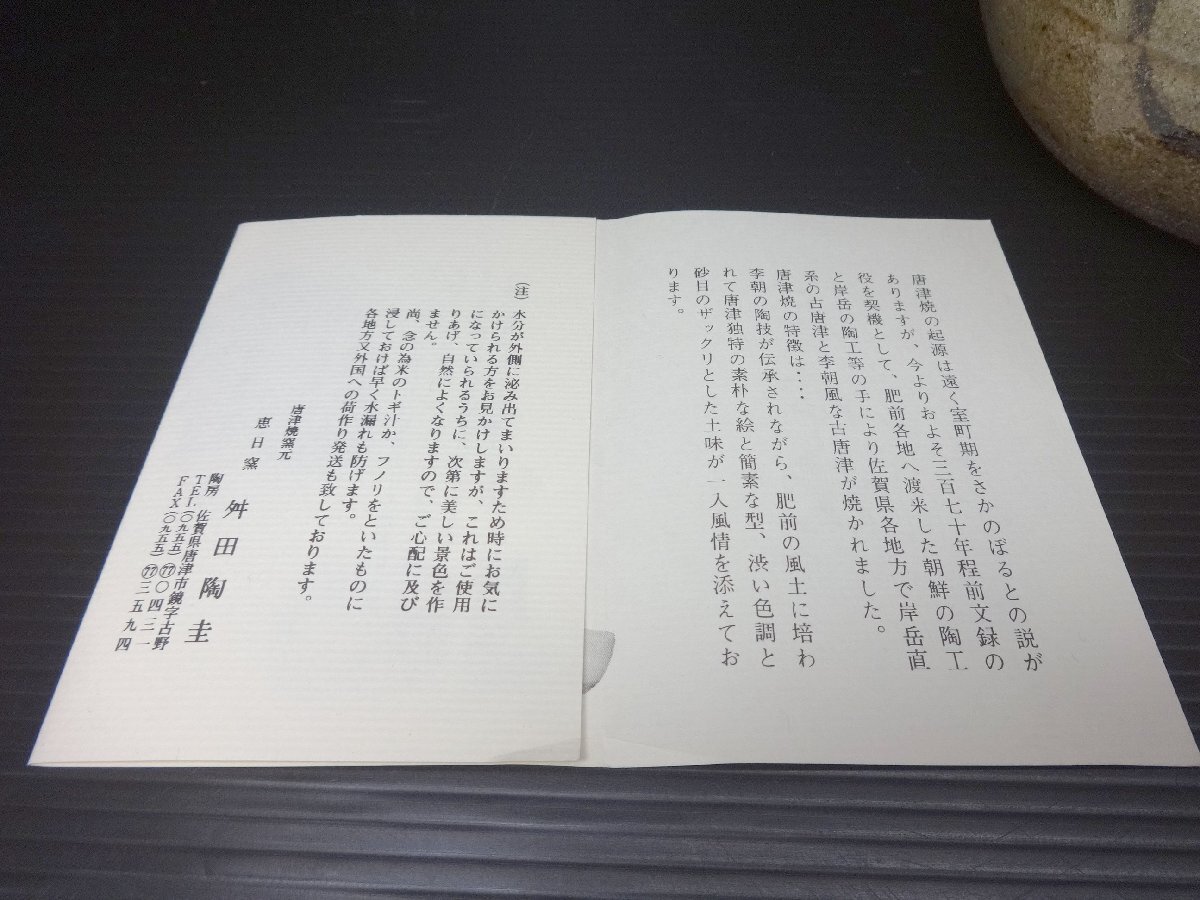 唐津焼の起源は遠く室町期をさかのぼるとの説が
ありますが、今よりおよそ三百七十年程前文録の
役を契機として、肥前各地へ渡来した朝鮮の陶工
と岸岳の陶工等の手により佐賀県各地方で岸岳直
系の古唐津と李朝風な古唐津が焼かれました。
唐津焼の特徴は‥‥
李朝の陶技が伝承されながら、肥前の風土に培わ
れて唐津独特の素朴な絵と簡素な型、渋い色調と
砂目のザックリとした土味が一入風情を添えてお
ります。
(注) 水分が外側に泌み出てまいりますため時にお気に
かけられる方をお見かけしますが、これはご使用
になっていられるうちに、次第に美しい景色を作
りあげ、自然によくなりますので、ご心配に及び
ません。
尚、念の為米のトギ汁か、フノリをといたものに
浸しておけば早く水漏れも防げます。
各地方又外国への荷作り発送も致しております。
唐津焼窯元
恵日窯
舛田陶圭
陶房 佐賀県唐津市鏡字古野
TEL(〇九五五)(77)〇四三一
FAX(〇九五五)(77)三五九四